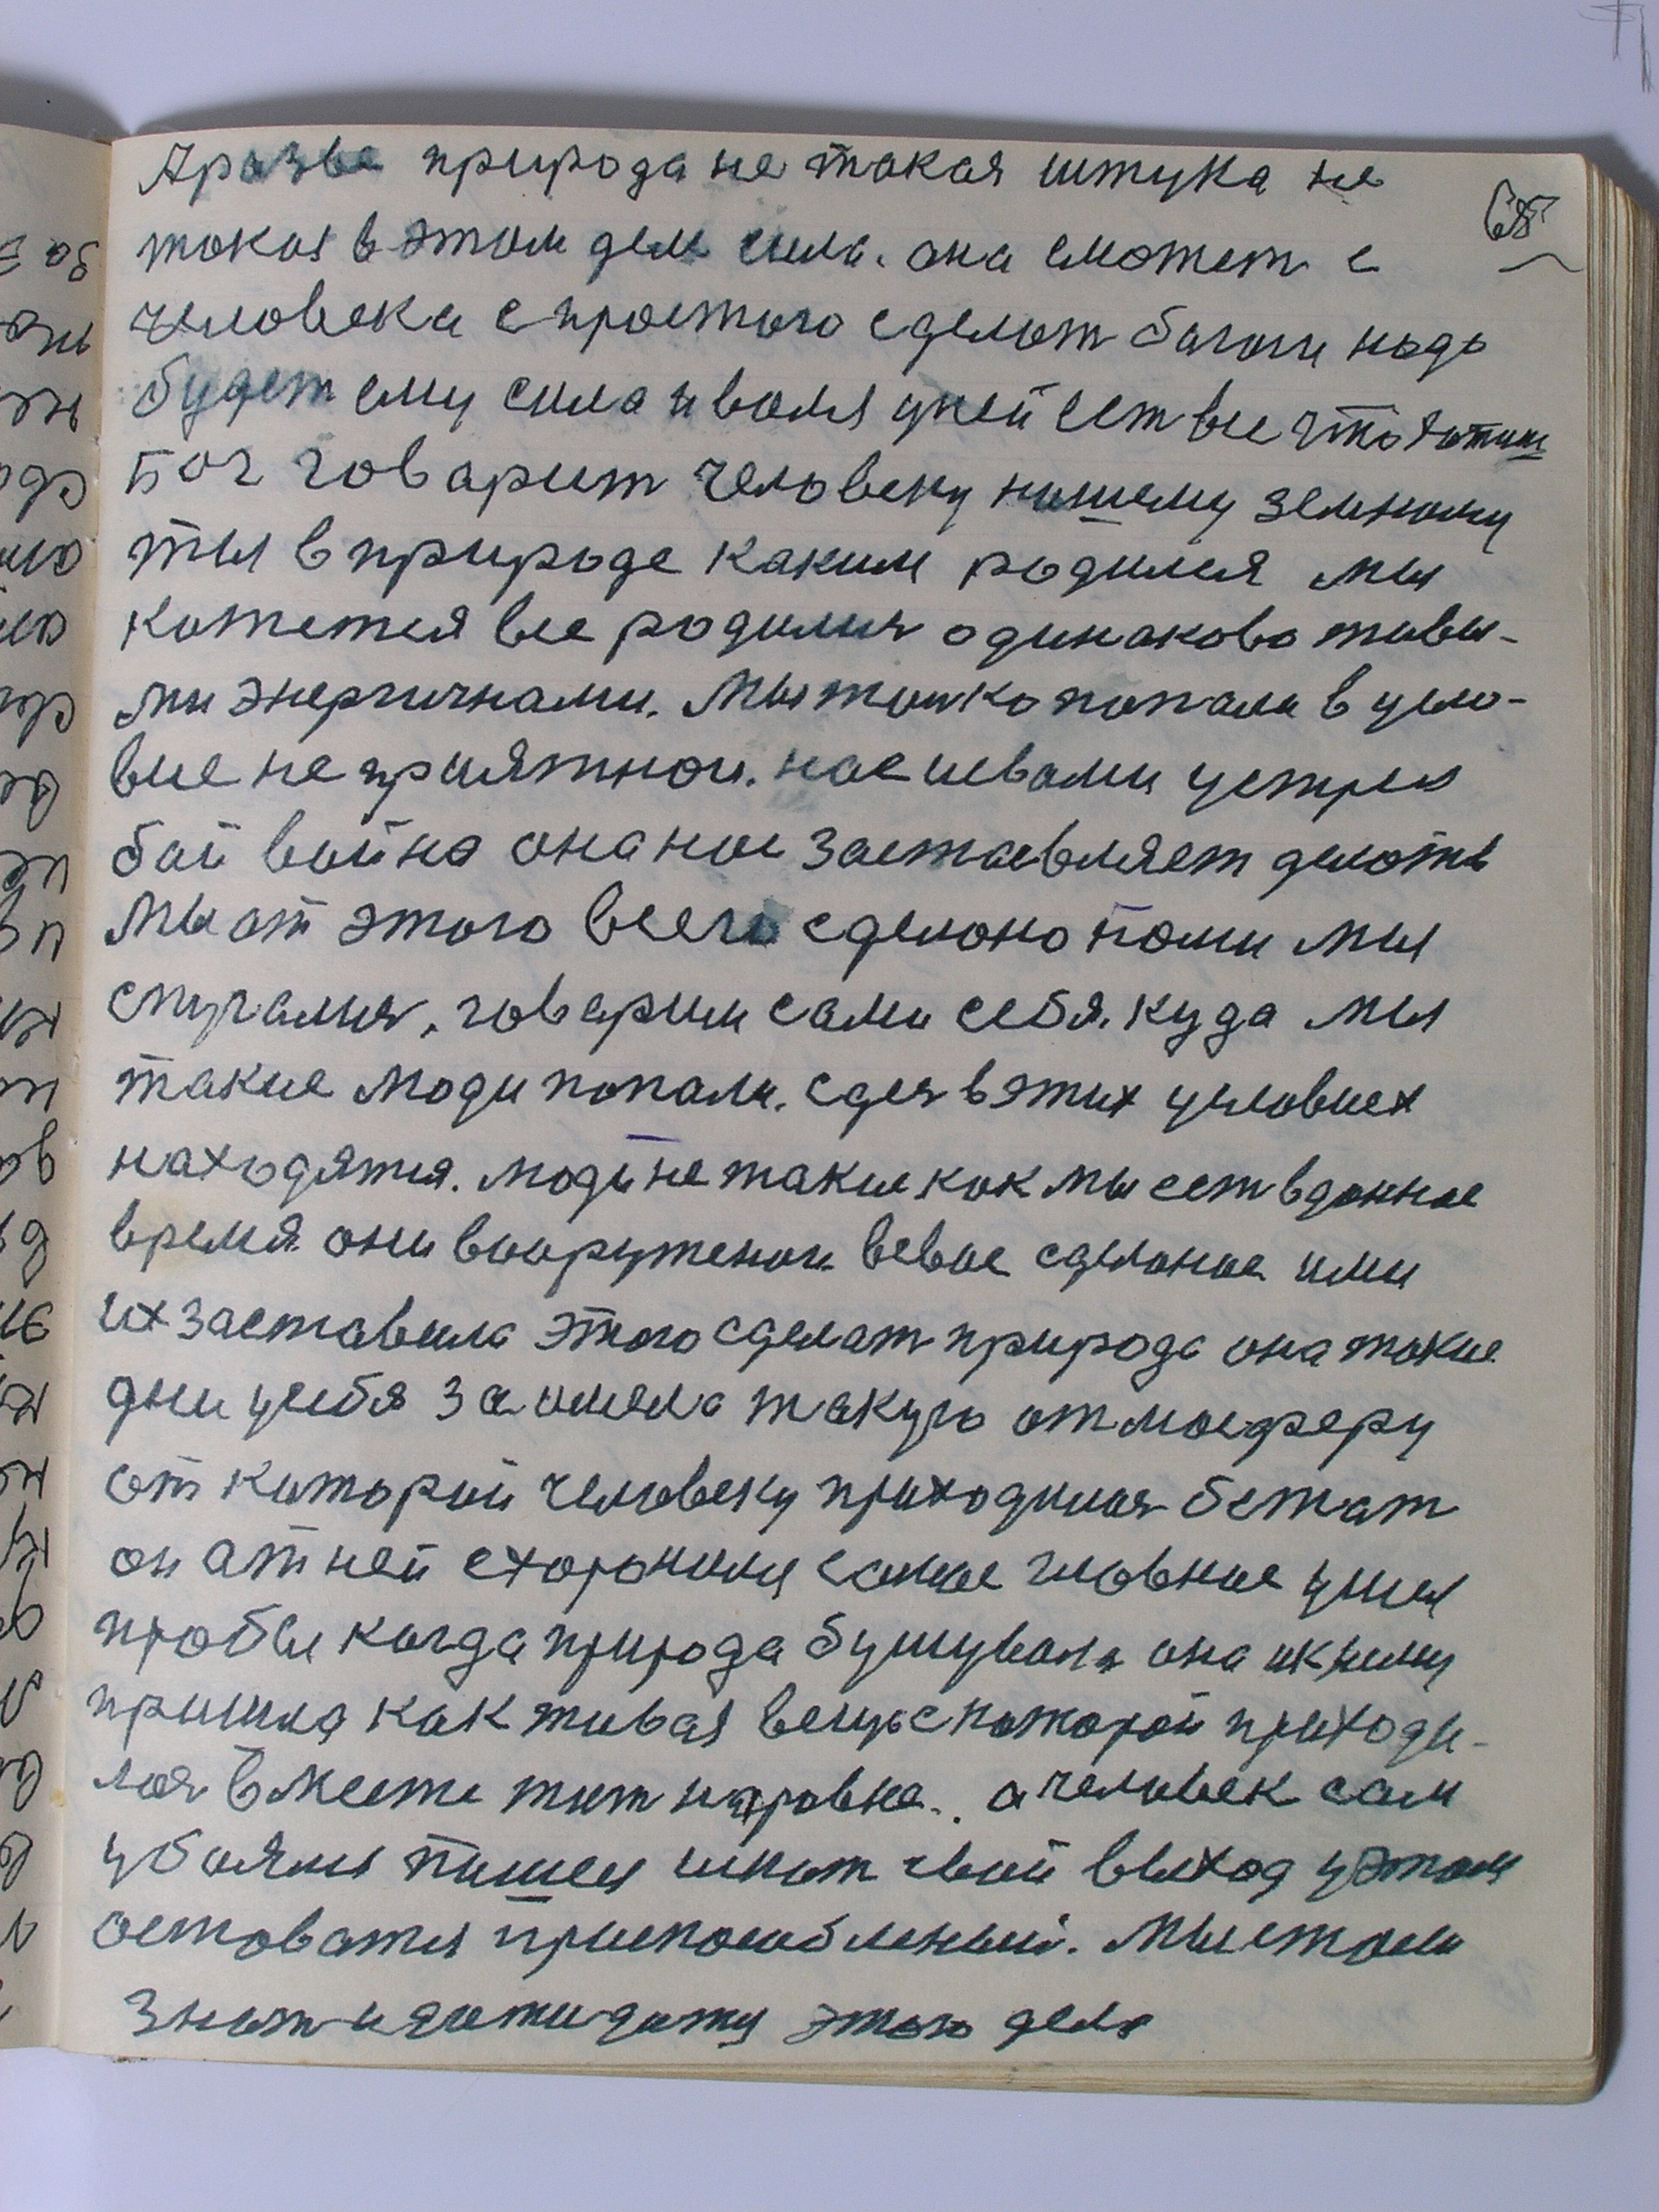 Аразве природа не такая штука не
такая в этом деле сила. она сможет с
человека с простого сделат багом надо
будет ему сила и воля уней ест все что
Бог говарит человеку нашему земному
ты в природе каким родился мы
кажется все родилис одинаково живы-
ми энергичнами. Мы толко попали в усло-
вие не приятнои. нас
бой война она нас заставляет делоть
Мы от этого всего сделоно нами мы
спугалис, говарим сами себя. куда мы
такие люди попали. сдес в этих условиех
находятся. люди не такие как мы ест в донное
время. они вооружоно. всвое сделоное ими
их заставила этого сделат природа она такие
дни усебя заимела такую отмосферу
от каторой человеку приходилос бежат
он атней схоронился самое главное ушел
чтобы когда природа бушувала она кнему
пришла как живая вещь скаторой приходи-
лос вместе жит наровне. а человек сам
убоялся пишел искат свой выход уэтом
остоватся приспособленый. Мы стали
знат этого дела
65